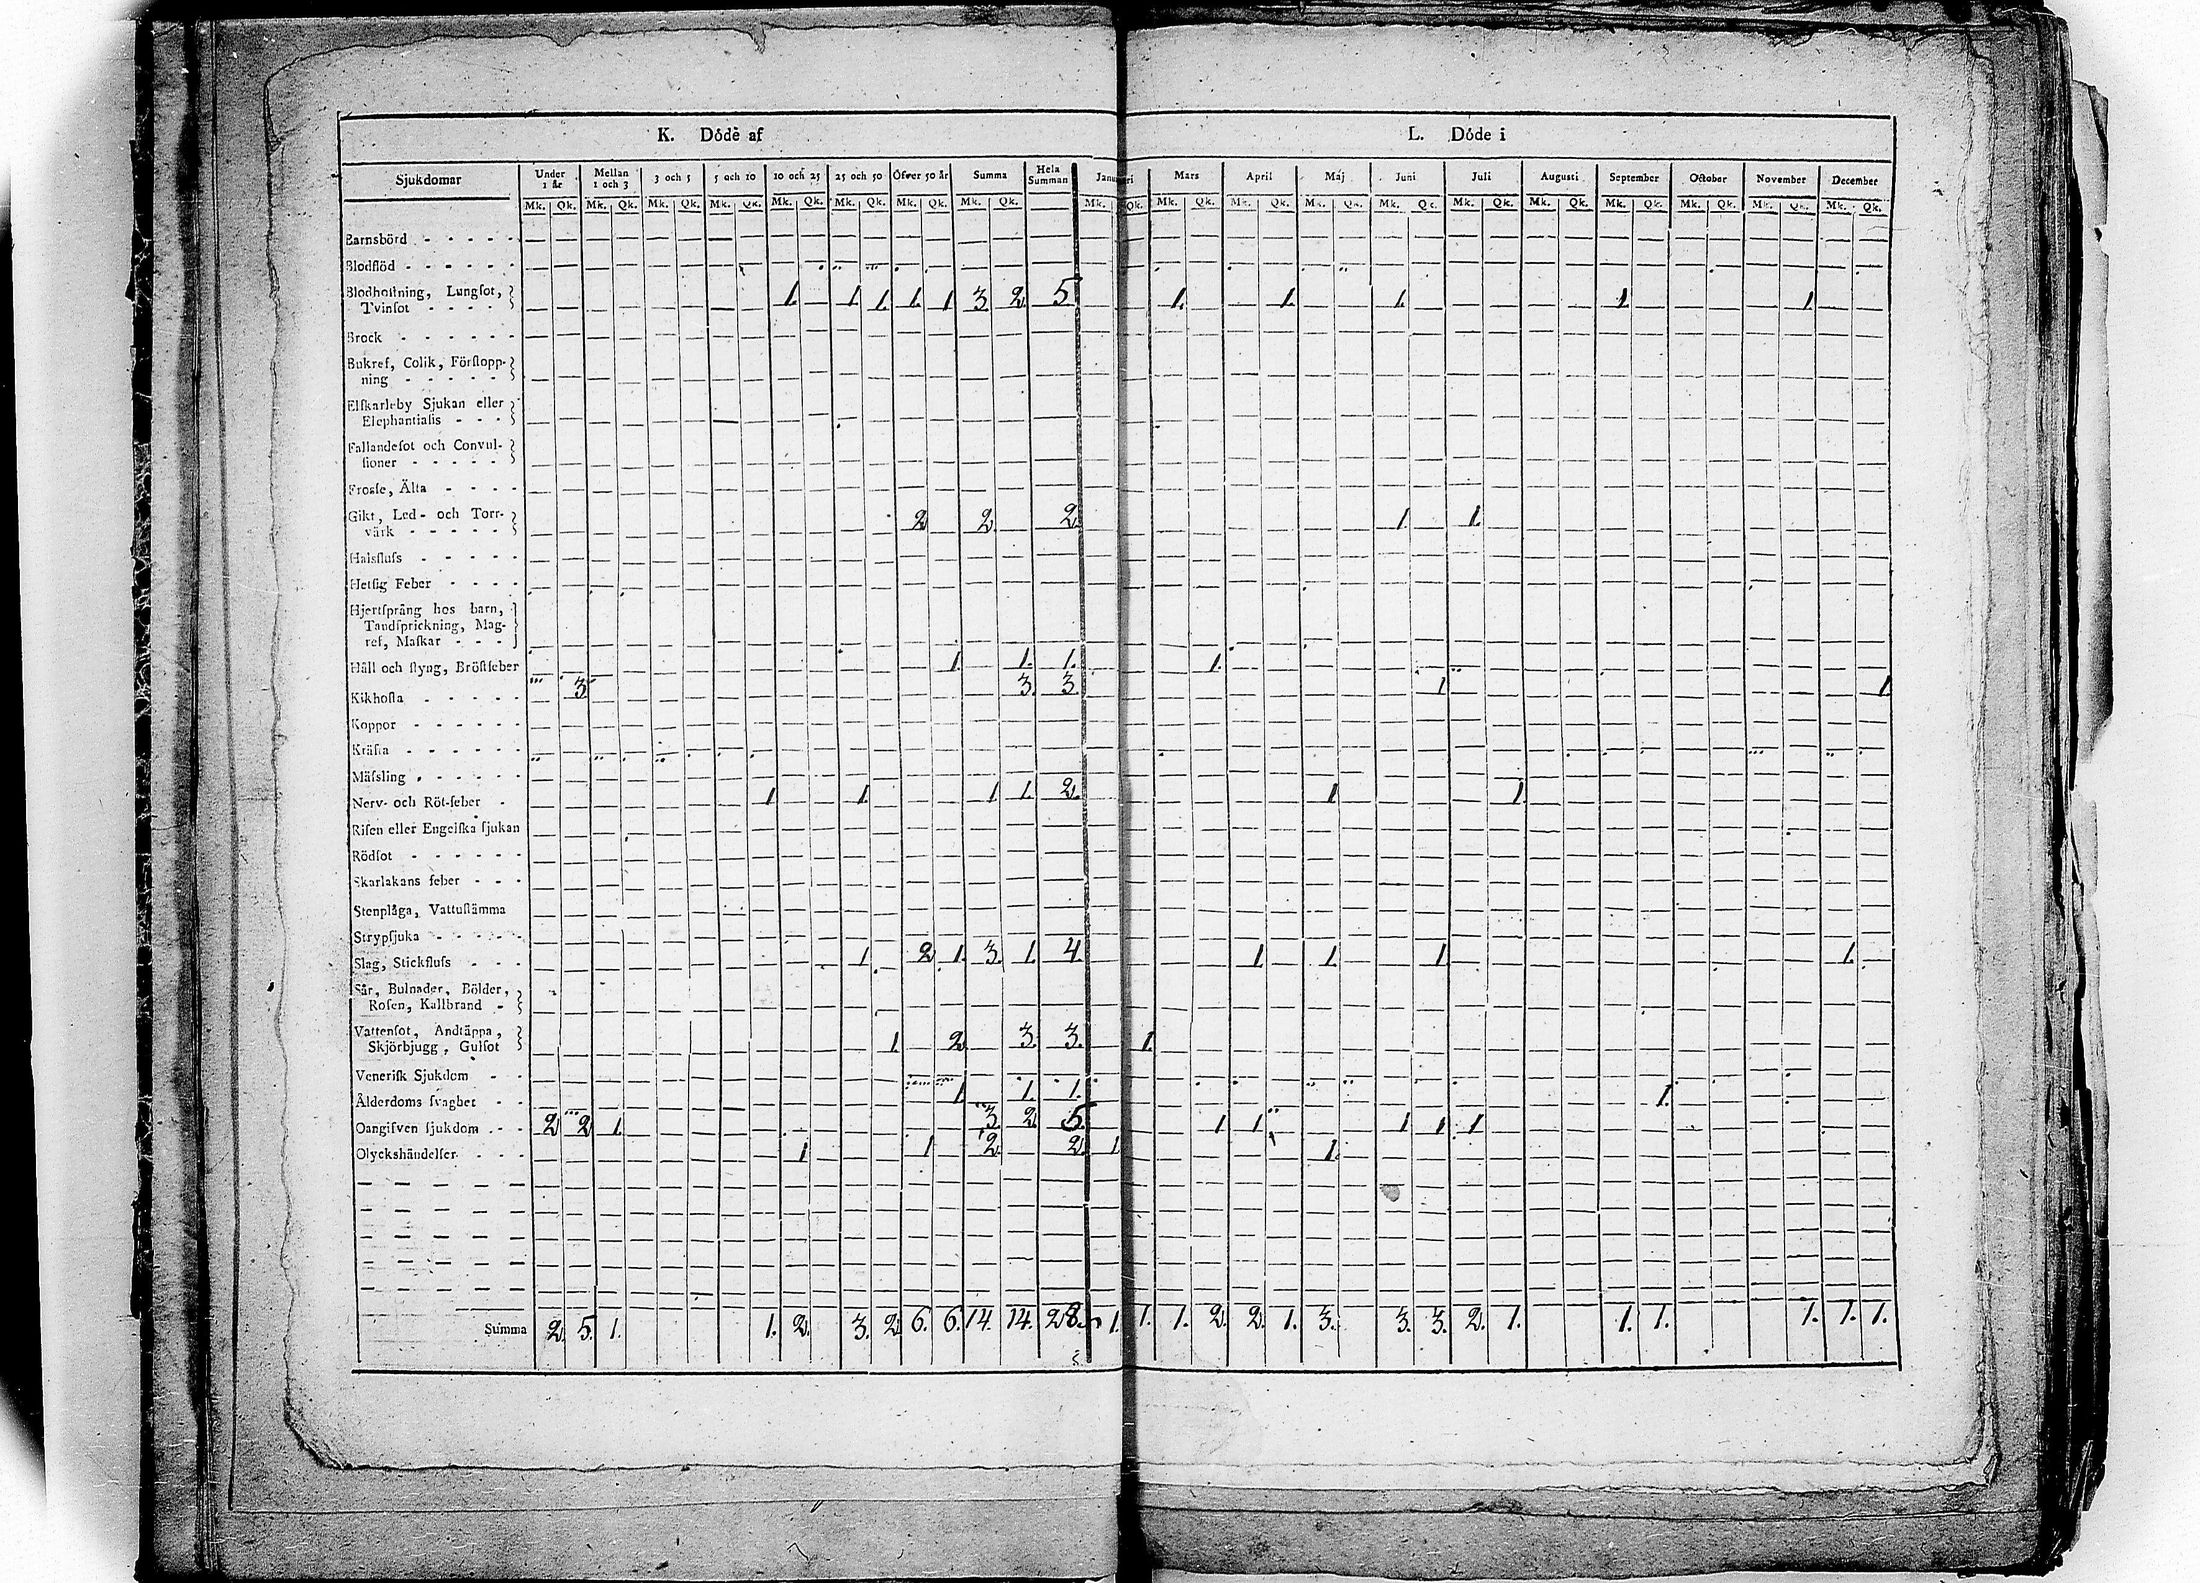 K. Döde af L. Döde i
Sjukdomar Under 1 år Mellan 1 och 3 3 och 5 5 och 10 10 och 25 25 och 50 Öfwer 50 år Summa Hela Summan Mars April Maj Juni Juli Augusti September October November December
Mk. Qk. Mk. Qk. Mk. Qk. Mk. Qk. Mk. Qk. Mk. Qk. Mk. Qk. Mk. Qk. Mk. Qk. Mk. Qk. Mk. Qk. Mk. Qk. Mk. Qk. Mk. Qk. Mk. Qk. Mk. Qk. Mk. Qk. Mk. Qk. Mk. Qk.
Barnsbörd
Blodflöd
Blodhostning, Lungsot,
Tvinsot 1. 1. 1. 1. 1 3. 2. 5 1. 1. 1. 1. 1
Brock
Bukref, Colik, Förstopp-
ning
Elskarleby Sjukan eller
Elephantiasis
Fallandesot och Convul-
sioner
Frossa, Älta
Gikt, Led- och Torr-
värk 2 2. 2. 1. 1.
Halsfluss
Hetsig Feber
Hjertsprång hos barn,
Tandsprickning, Mag-
ref, Maskar
Håll och styng, Bröstfeber 1. 1. 1. 1.
Kikhosta 3 3. 3. 1 1
Koppor
Kräfta
Mässling
Nerv- och Röt-feber 1 1. 1 1. 2. 1 1
Risen eller Engelska sjukan
Rödsot
Skarlakans feber
Stenplåga, Vattustämma
Strypsjuka
Slag, Stickfluss 1 2 1. 3. 1. 4 1 1. 1 1.
Sår, Bulnader, Bölder,
Rosen, Kallbrand
Vattensot, Andtäppa,
Skjörbjugg, Gulsot 1. 2 3. 3. 1.
Venerisk Sjukdom
Ålderdoms svaghet 1 1. 1. 1.
Oangifven sjukdom 2 2 1. 3. 2. 5. 1 1 1 1 1
Olyckshändelser 1 1 2. 2. 1. 1.
Summa 2. 5. 1. 1. 2. 3. 2 6. 6. 14. 14. 28. 1. 1. 1. 2. 2. 1. 3. 3. 3. 2. 1. 1. 1. 1. 1. 1.